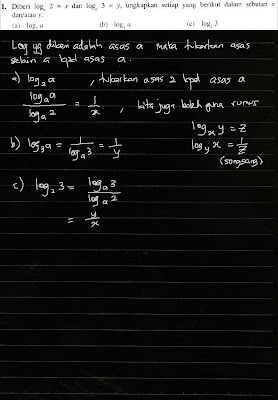 1. Diberi logₐ 2 = x dan logₐ 3 = y, ungkapkan setiap yang berikut dalam sebutan x
dan/atau y.
(a) log₂ a (b) log₃ a (c) log₂ 3
Log yg diberi adalah asas a maka tukarkan asas
selain a kpd asas a.
a) log₂a , tukarkan asas 2 kpd asas a
logₐa / logₐ2 = 1/x , kita juga boleh guna rumus
logₓ y = z
log_y x = 1/z
(songsang)
b) log₃a = 1/logₐ3 = 1/y
c) log₂ 3 = logₐ3 / logₐ2
= y/x